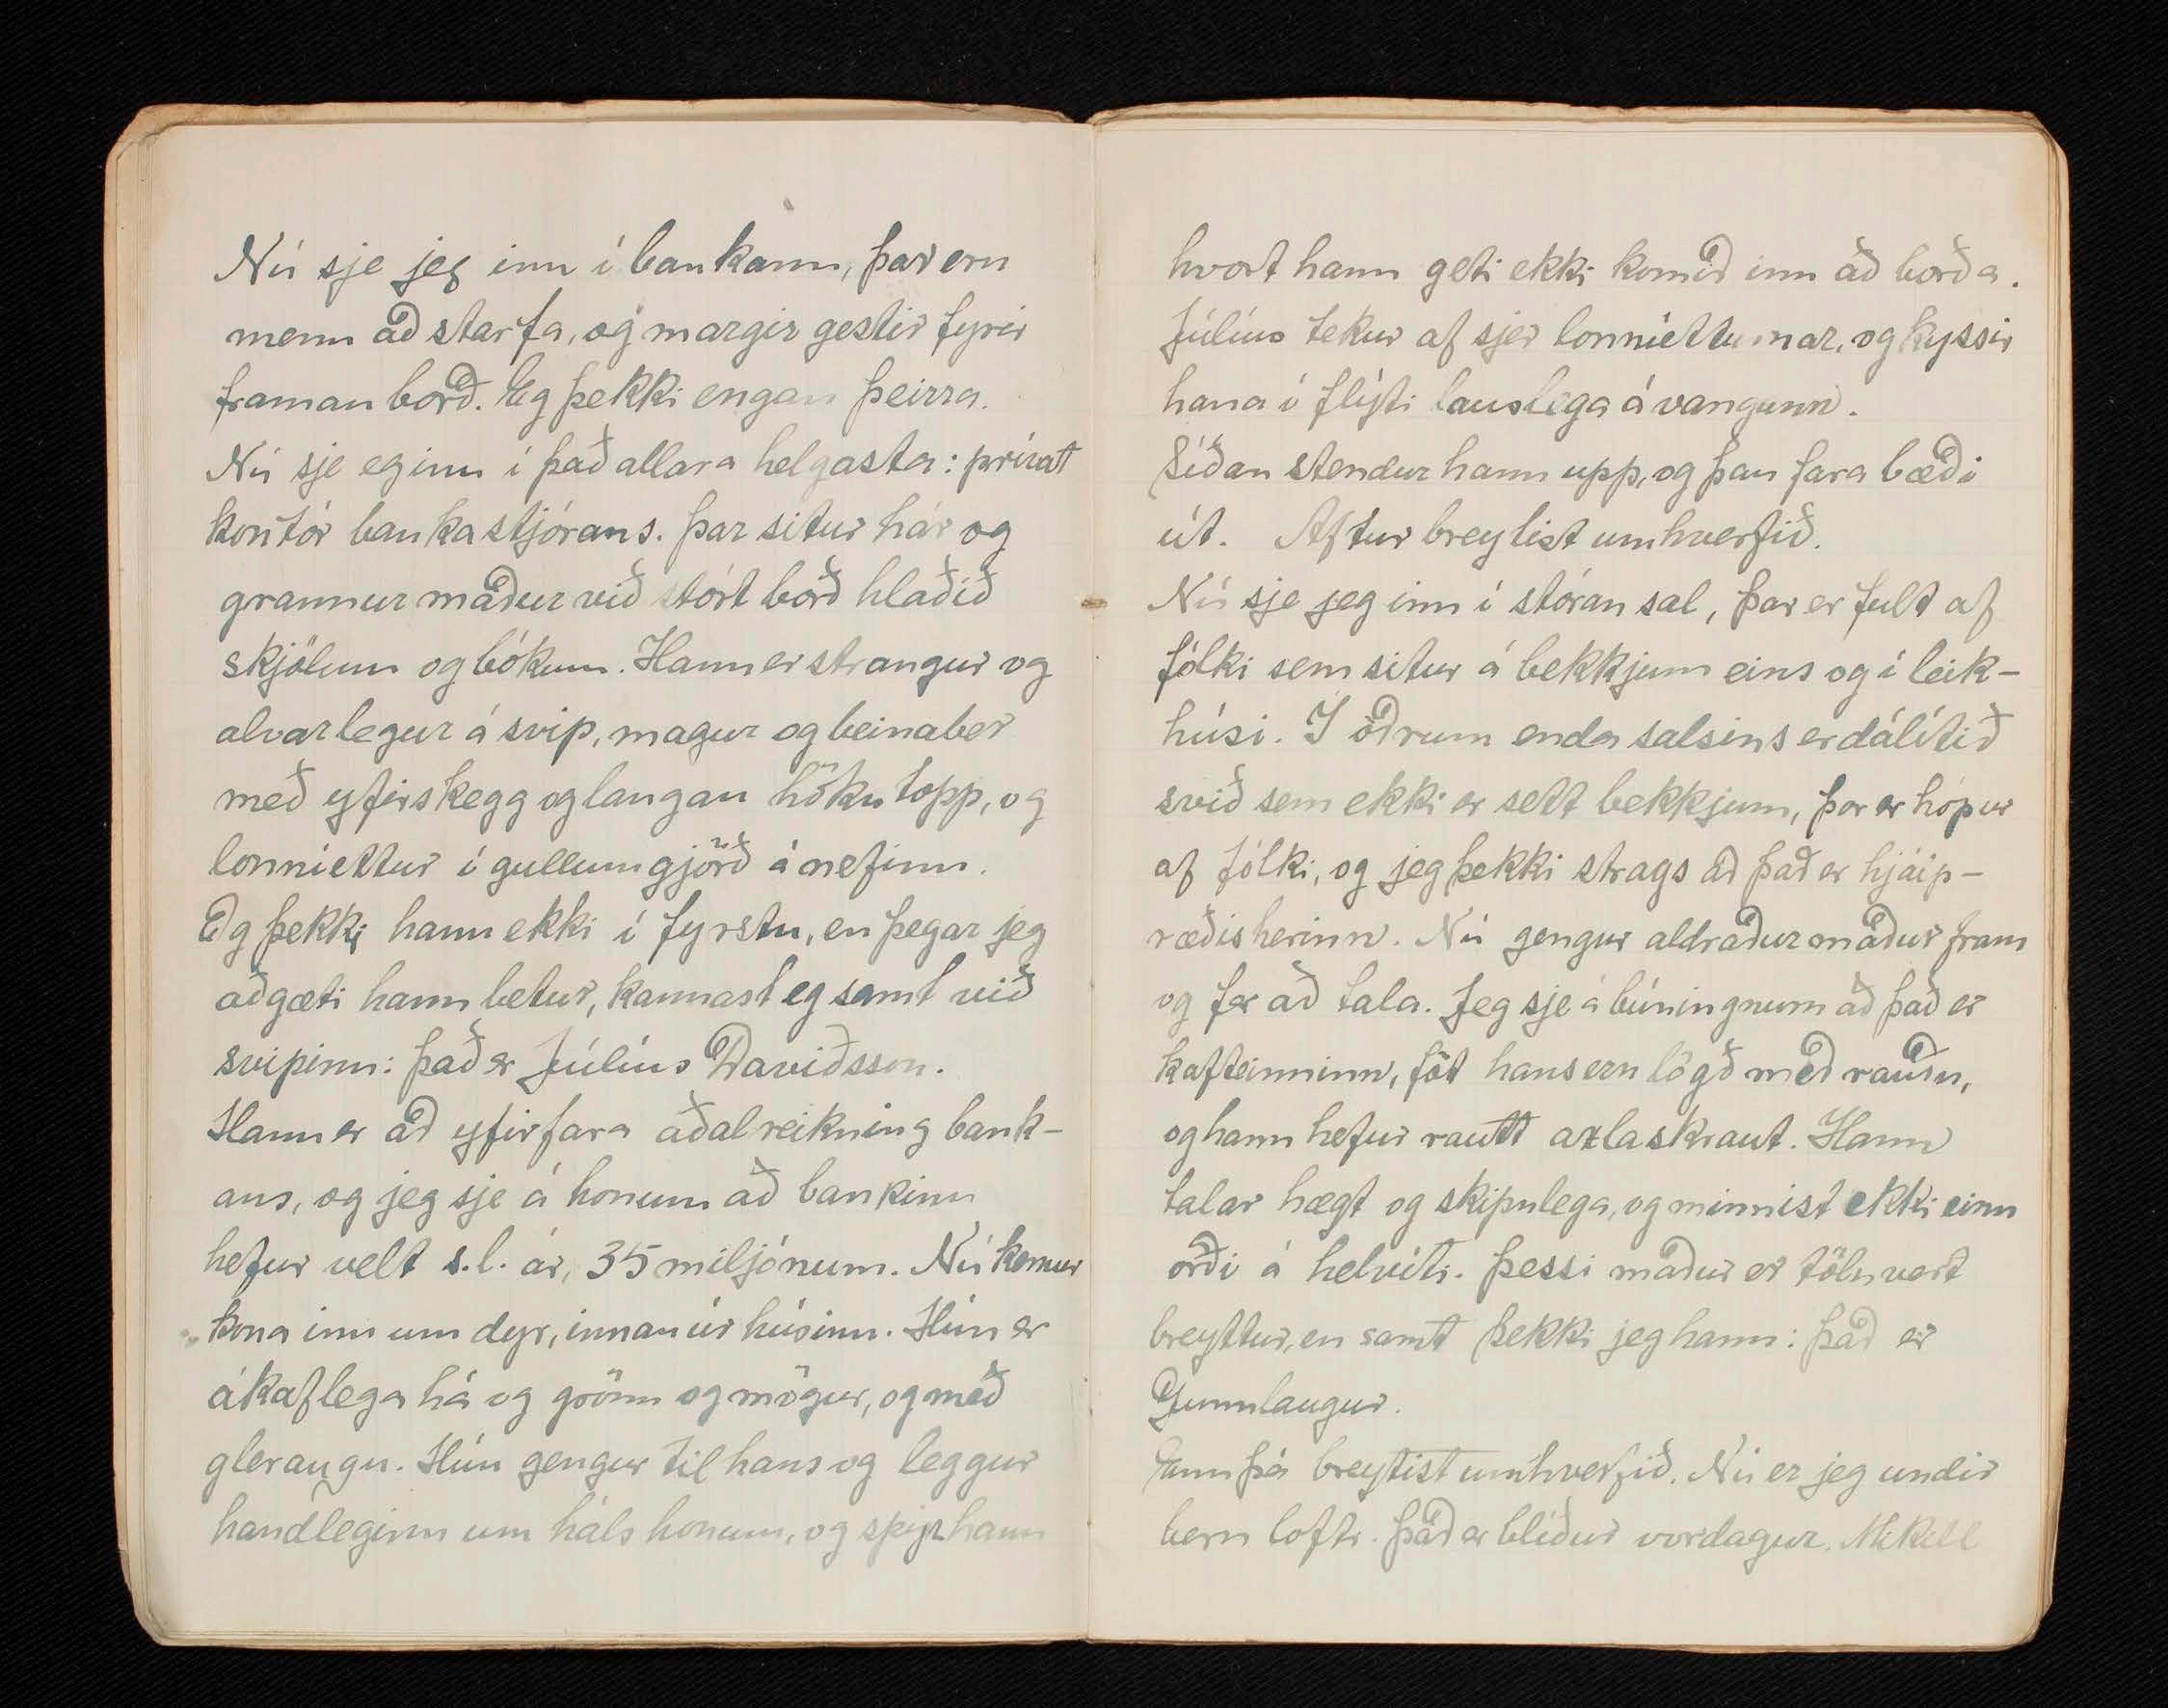 Nú sje jeg inn í bankann, þar eru
menn að starfa, og margir gestir fyrir
framan borð. Eg þekki engan þeirra.
Nú sje eg inn í það allara helgasta: prívat
kontór bankastjórans. Þar situr hár og
grannur maður við stórt borð hlaðið
skjölum og bókum. Hann er strangur og
alvarlegur á svip, magur og beinaber
með yfirskegg og langan hökutopp, og
lonníettur í gullumgjörð á nefinu.
Eg þekki hann ekki í fyrstu, en þegar jeg
aðgæti hann betur, kannast eg samt við
svipinn: það er Júlíus Davíðsson.
Hann er að yfirfara aðalreikning bank-
ans, og jeg sje á honum að bankinn
hefur velt s.l. ár, 35 miljónum. Nú kemur
kona inn um dyr, innan úr húsinu. Hún er
ákaflega há og grönn og mögur, og með
gleraugu. Hún gengur til hans og leggur
handleginn um háls honum, og spyr hann
hvort hann geti ekki komið inn að borða.
Júlíus tekur af sjer lonníetturnar, og kyssir
hana í flýti lauslega á vangann.
Síðan stendur hann upp, og þau fara bæði
út. Aftur breytist umhverfið.
Nú sje jeg inn í stóran sal, þar er fult af
fólki sem situr á bekkjum eins og í leik-
húsi. Í öðrum enda salsins er dálítið
svið sem ekki er sett bekkjum, þar er hópur
af fólki, og jeg þekki strags að það er hjálp-
ræðisherinn. Nú gengur aldraður maður fram
og fer að tala. Jeg sje á búningnum að það er
kafteinninn, föt hans eru lögð með rauðu,
og hann hefur rautt axlaskraut. Hann
talar hægt og skipulega, og minnist ekki einu
orði á helvíti. Þessi maður er töluvert
breyttur, en samt þekki jeg hann: það er
Gunnlaugur.
Enn þá breytist umhverfið. Nú er jeg undir
beru lofti. Það er blíður vordagur. Mikill